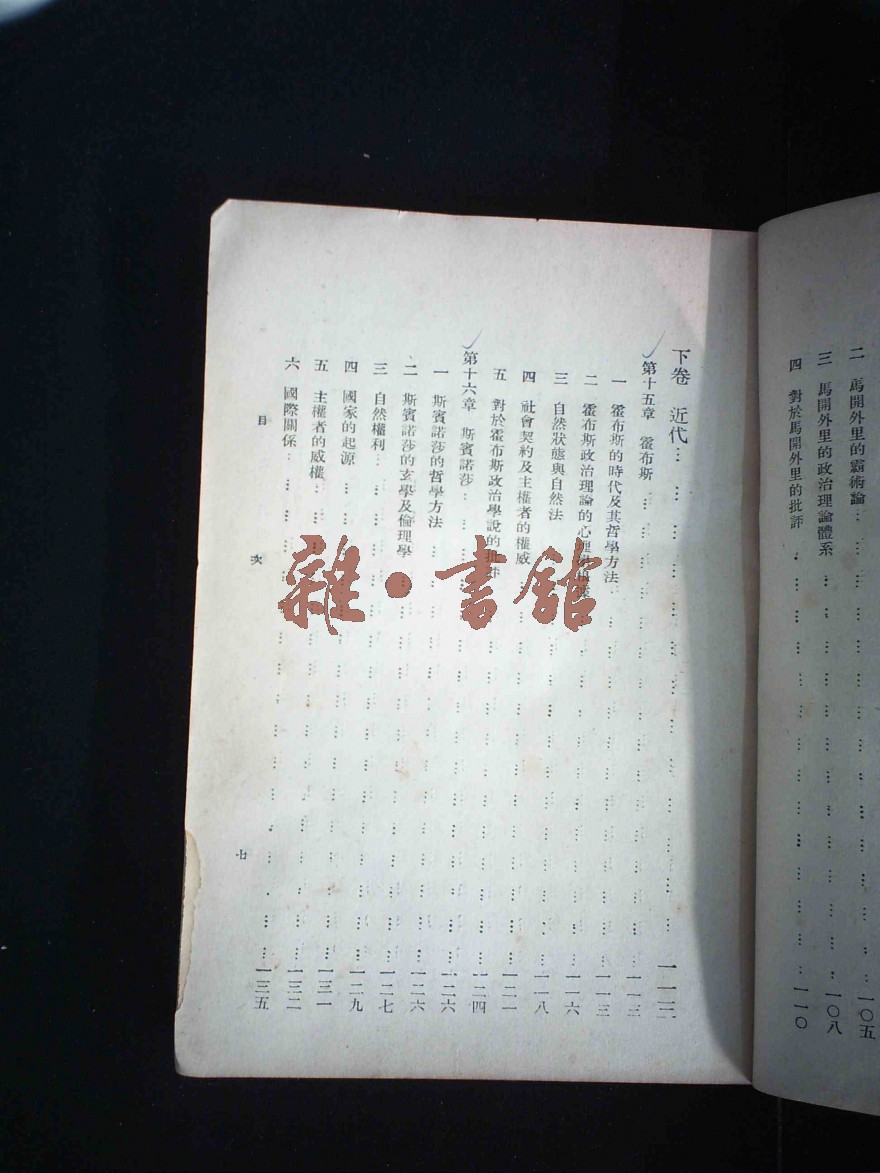 二 馬開外里的霸術論…一〇五
三 馬開外里的政治理論體系…一〇八
四 對於馬開外里的批評…一一〇
下卷 近代…一一三
第十五章 霍布斯…一一三
一 霍布斯的時代及其哲學方法…一一三
二 霍布斯政治理論的心理…一一六
三 自然狀態與自然法…一一八
四 社會契約及主權者的權威…一二一
五 對於霍布斯政治學說的批評…一二四
第十六章 斯賓諾莎…一二六
一 斯賓諾莎的哲學方法…一二六
二 斯賓諾莎的玄學及倫理學…一二七
三 自然權利…一二九
四 國家的起源…一三一
五 主權者的威權…一三二
六 國際關係…一三五
目次
七
雜·書館